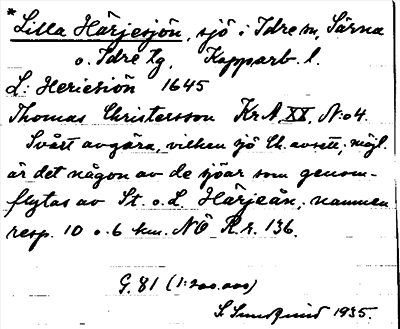 * Lilla Härjesjön, sjö i Idre sn, Särna
o. Idre tg, Kopparb. l.
L: Heriesiön 1645
Thomas Christersson Kr.A. XX, N:o 4.
Svårt avgöra, vilken sjö Ch. avsett; möjl.
är det någon av de sjöar som genom-
flytas av St. o. L. Härjeån; namnen
resp. 10 o. 6 km. NÖ R.r. 136.
G. 81 (1:200.000)
S. Sundquind 1935.